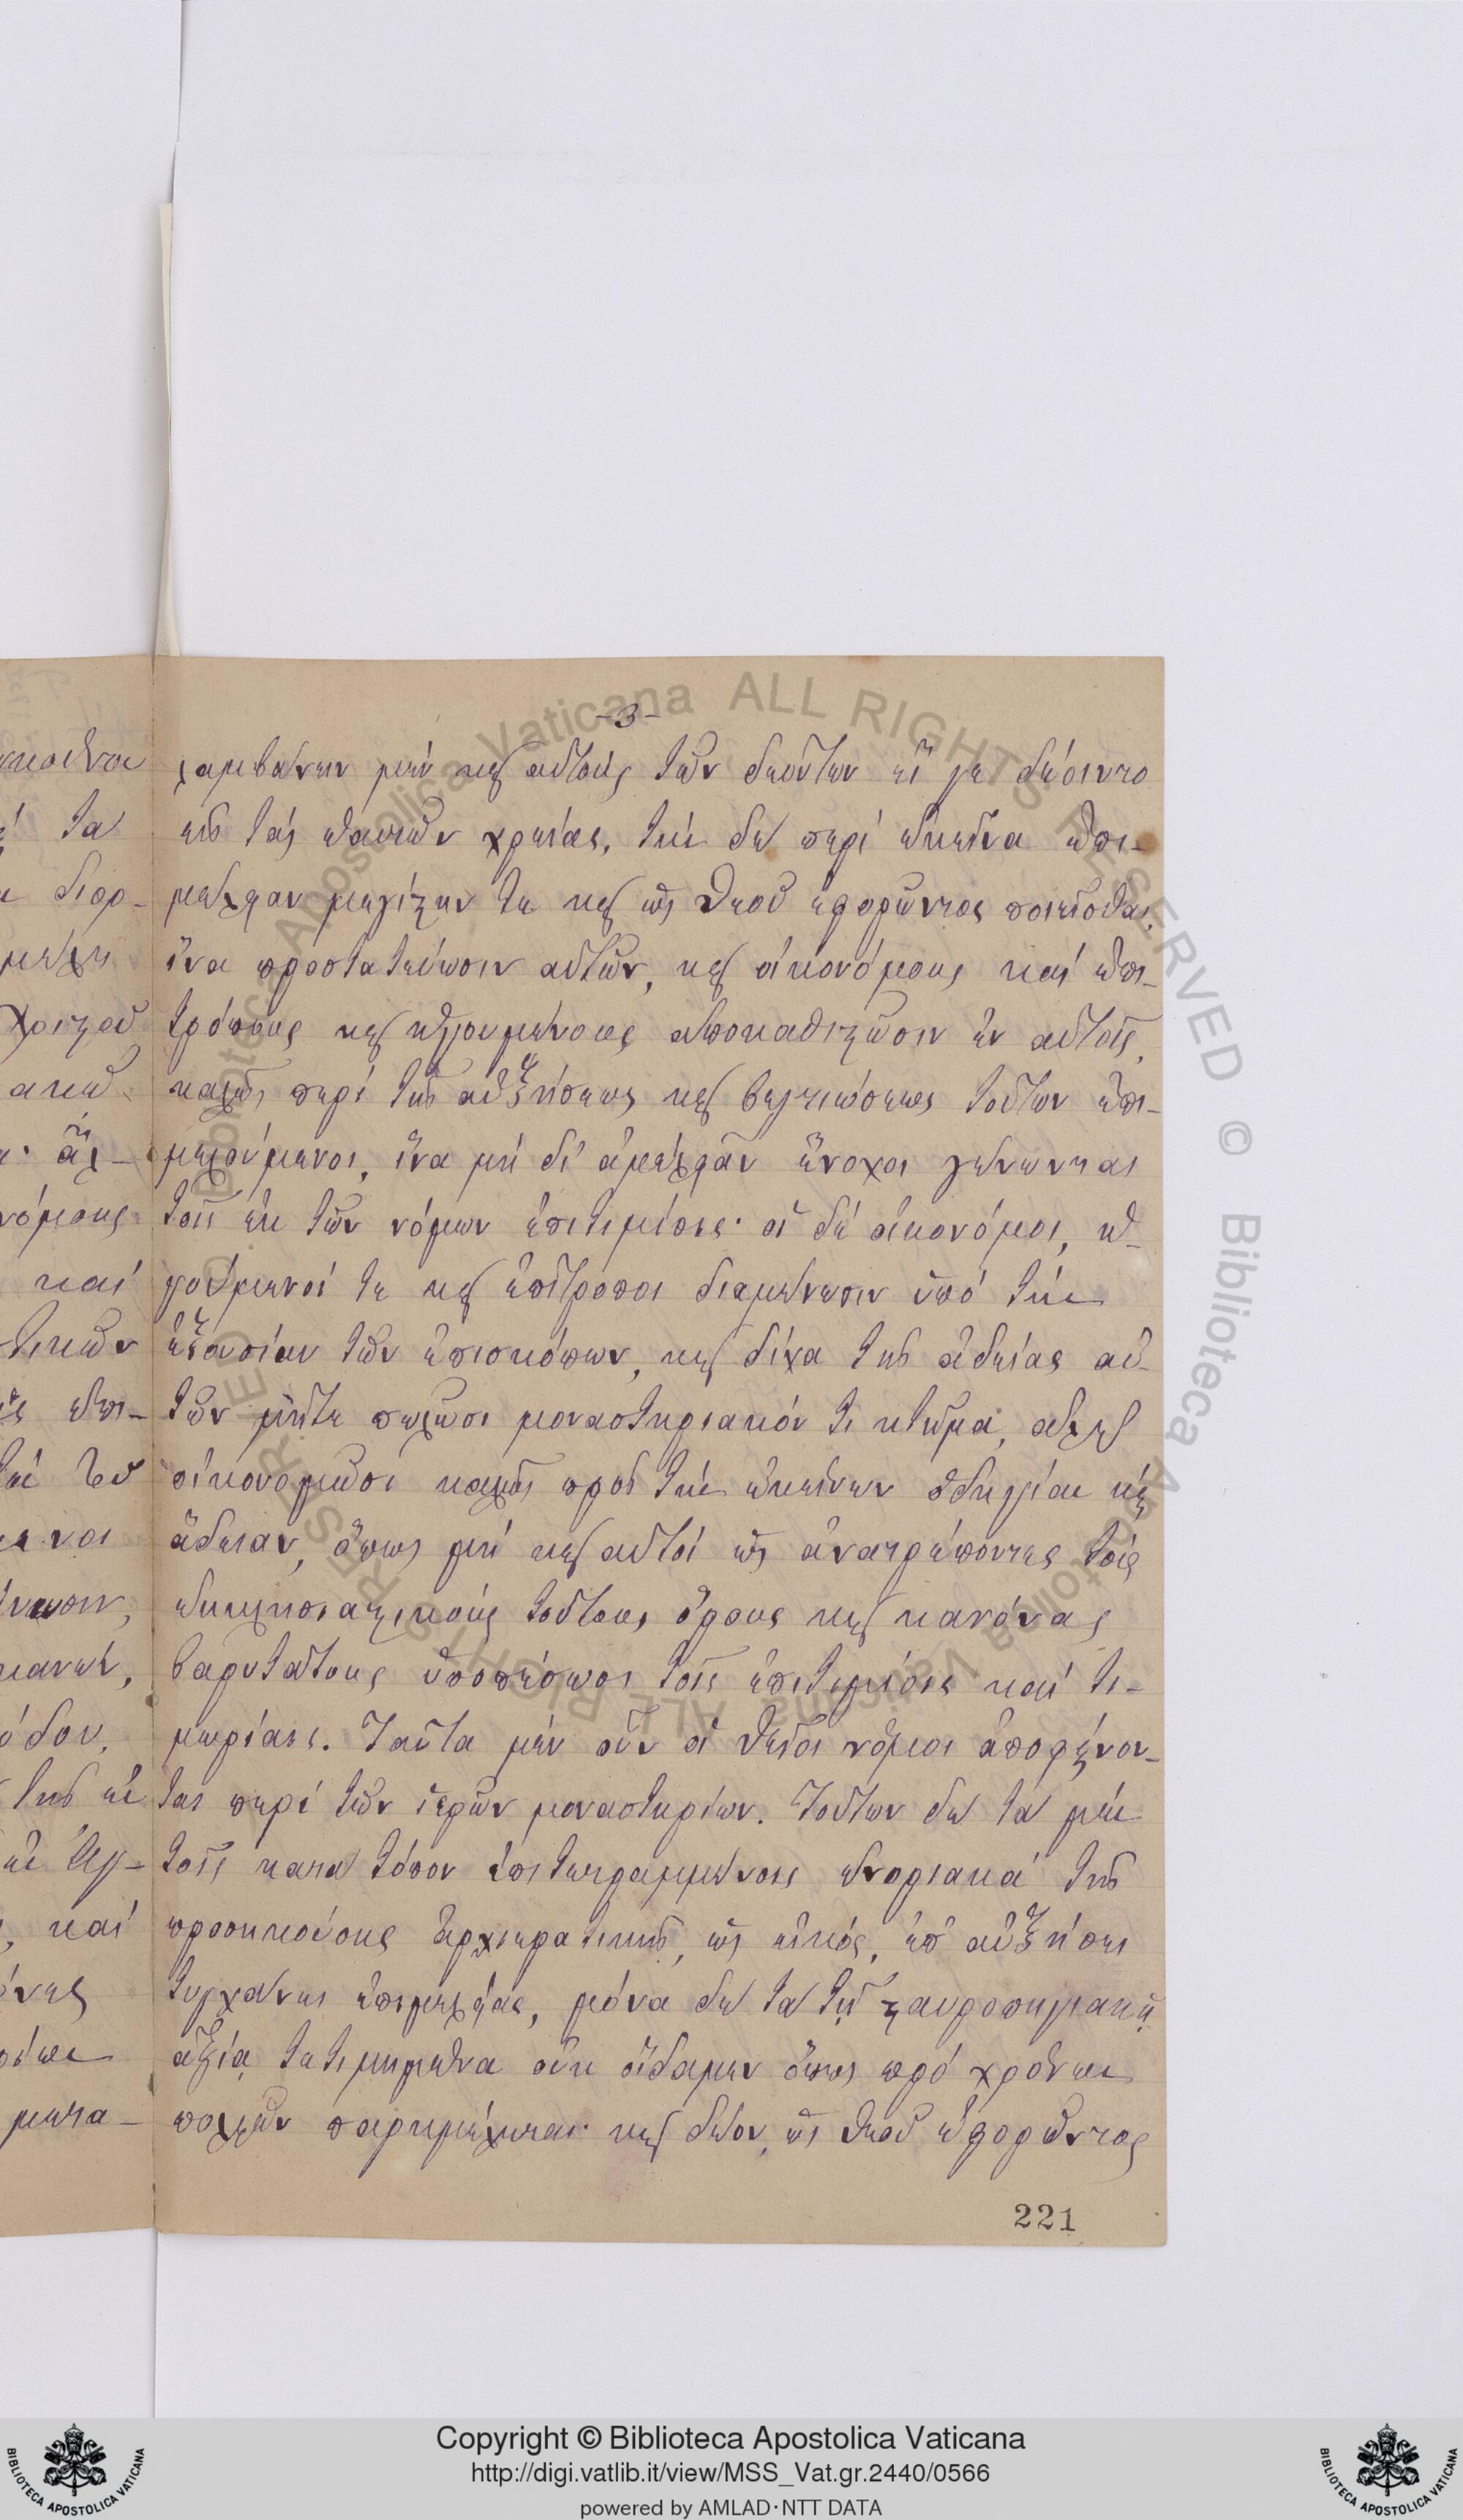 -3-
λαμβάνειν μέν καὶ αὐτούς τῶν δεόντων εἴ γε δέοιντο
εἰς τάς ἑαυτῶν χρείας, τήν δέ περί ἐκεῖνα ἐπι-
μέλειαν μεγίστην τε καὶ ὡς Θεοῦ ἐφορῶντος ποιεῖσθαι,
ἵνα προστατεύωσιν αὐτῶν, καὶ οἰκονόμους καί ἐπι-
τρόπους καὶ ἡγουμένους ἀποκαθιστῶσιν ἐν αὐτοῖς,
καλῶς περί τῆς αὐξήσεως καὶ βελτιώσεως τούτων ἐπι-
μελούμενοι, ἵνα μή δι' ἀμέλειαν ἔνοχοι γένωνται
τοῖς ἐκ τῶν νόμων ἐπιτιμίοις· οἱ δέ οἰκονόμοι, ἡ-
γούμενοί τε καὶ ἐπίτροποι διαμένωσιν ὑπό τήν
ἐξουσίαν τῶν ἐπισκόπων, καὶ δίχα τῆς ἀδείας αὐ-
τῶν μήτε πωλῶσι μοναστηριακόν τι κτῆμα, ἀλλ'
οἰκονομῶσι καλῶς πρός τήν ἐκείνων ὁδηγίαν καὶ
ἄδειαν, ὅπως μή καὶ αὐτοί ὡς ἀνατρέποντες τούς
ἐκκλησιαστικούς τούτους ὅρους καὶ κανόνας
βαρυτάτους ὑποπέσωσι τοῖς ἐπιτιμίοις καί τι-
μωρίαις. Ταῦτα μέν οὖν οἱ θεῖοι νόμοι ἀποφαίνον-
ται περί τῶν ἱερῶν μοναστηρίων. Τούτων δέ τά μέν
τοῖς κατά τόπον ἐπιτετραμμένοις ἐνοριακά τῆς
προσηκούσης ἀρχιερατικῆς, ὡς εἰκός, ἐπ' αὐξήσει
τυγχάνει ἐπιμελείας, μόνα δέ τά τῇ σταυροπηγιακῇ
ἀξίᾳ τετιμημένα οὐκ οἴδαμεν ὅπως πρό χρόνων
πολλῶν παρημέληται· καὶ δέον, ὡς Θεοῦ ἐφορῶντος
221
Copyright © Biblioteca Apostolica Vaticana
http://digi.vatlib.it/view/MSS_Vat.gr.2440/0566
powered by AMLAD·NTT DATA